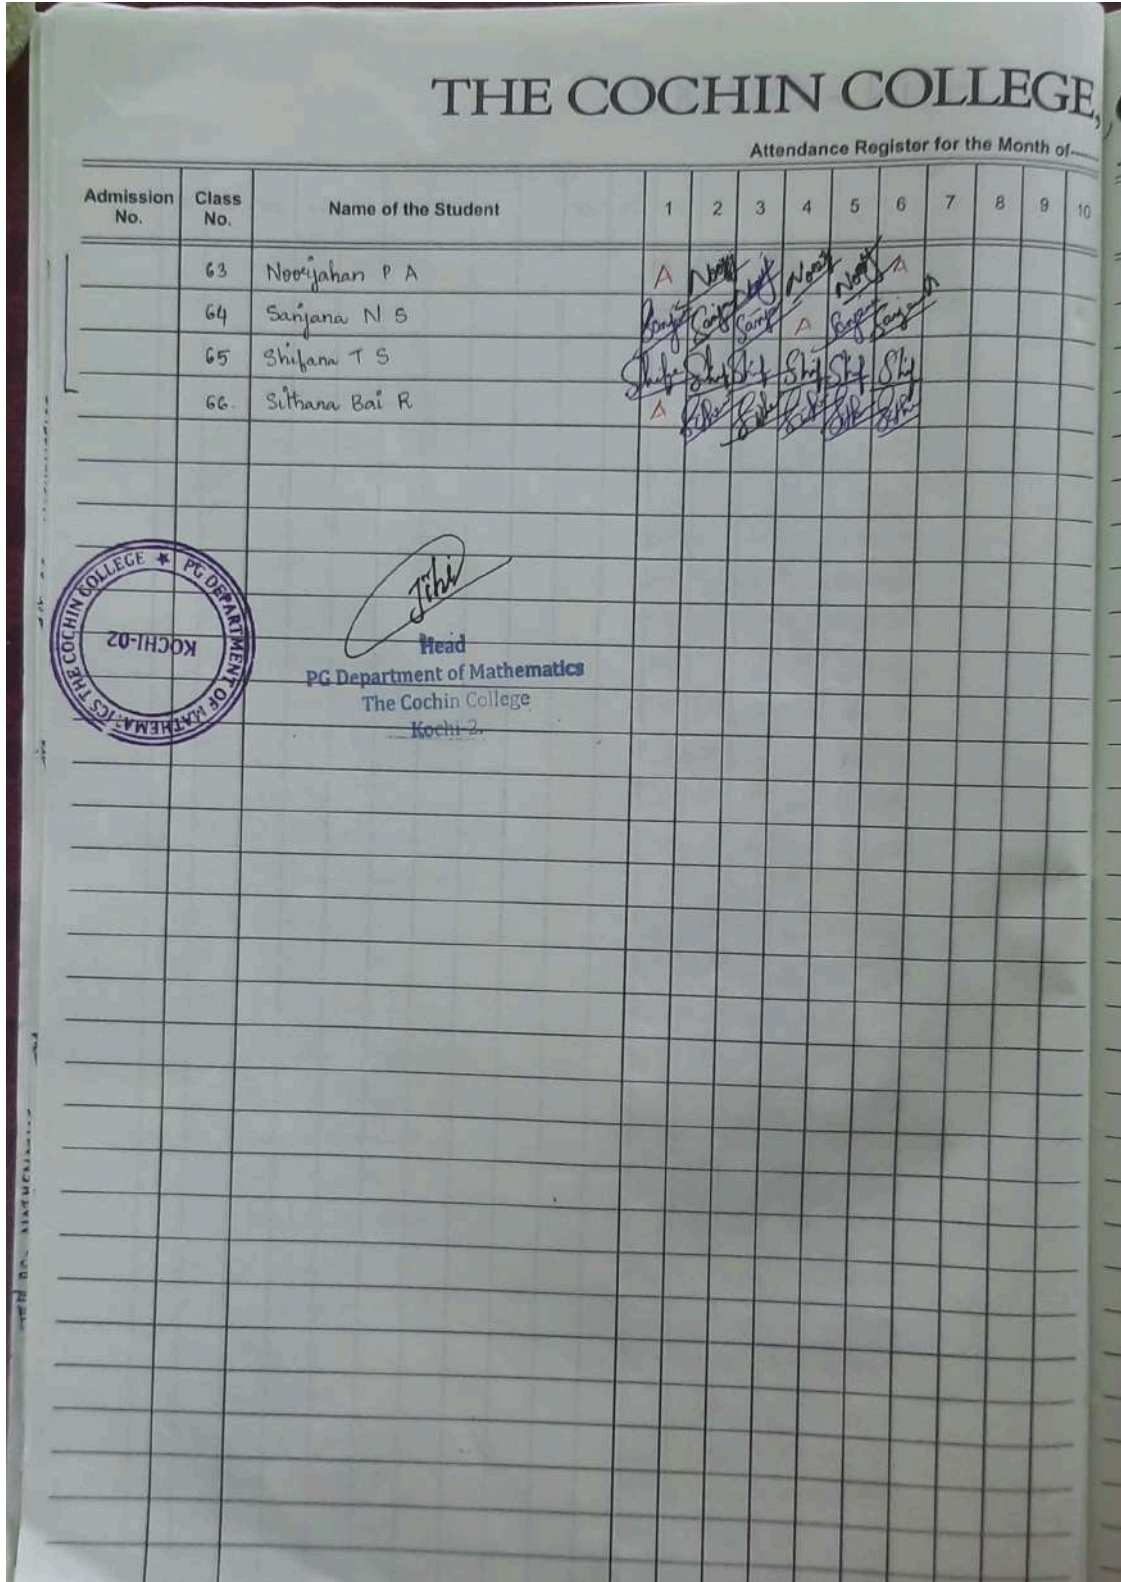 THE COCHIN COLLEGE,
Attendance Register for the Month of
Admission No. Class No. Name of the Student 1 2 3 4 5 6 7 8 9 10
63 Noorjahan P A A Noorj Noorj Noorj Noorj A
64 Sanjana N S Sanjana Sanjana Sanjana A Sanjana Sanjana
65 Shifana T S Shifa Shif Shif Shif Shif Shif
66. Sithana Bai R A
THE COCHIN COLLEGE ★ PG DEPARTMENT OF MATHEMATICS
KOCHI-02
Jihi
Head
PG Department of Mathematics
The Cochin College
Kochi-2.